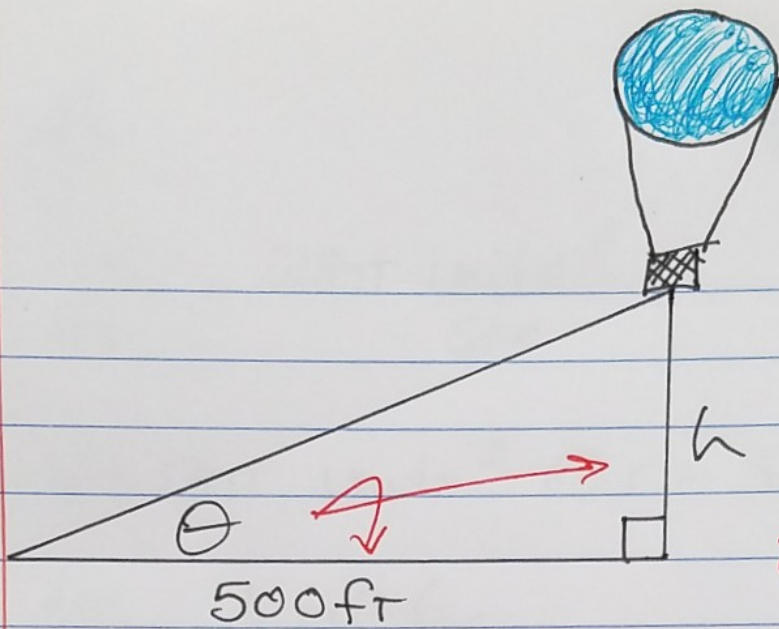 h
θ
500ft